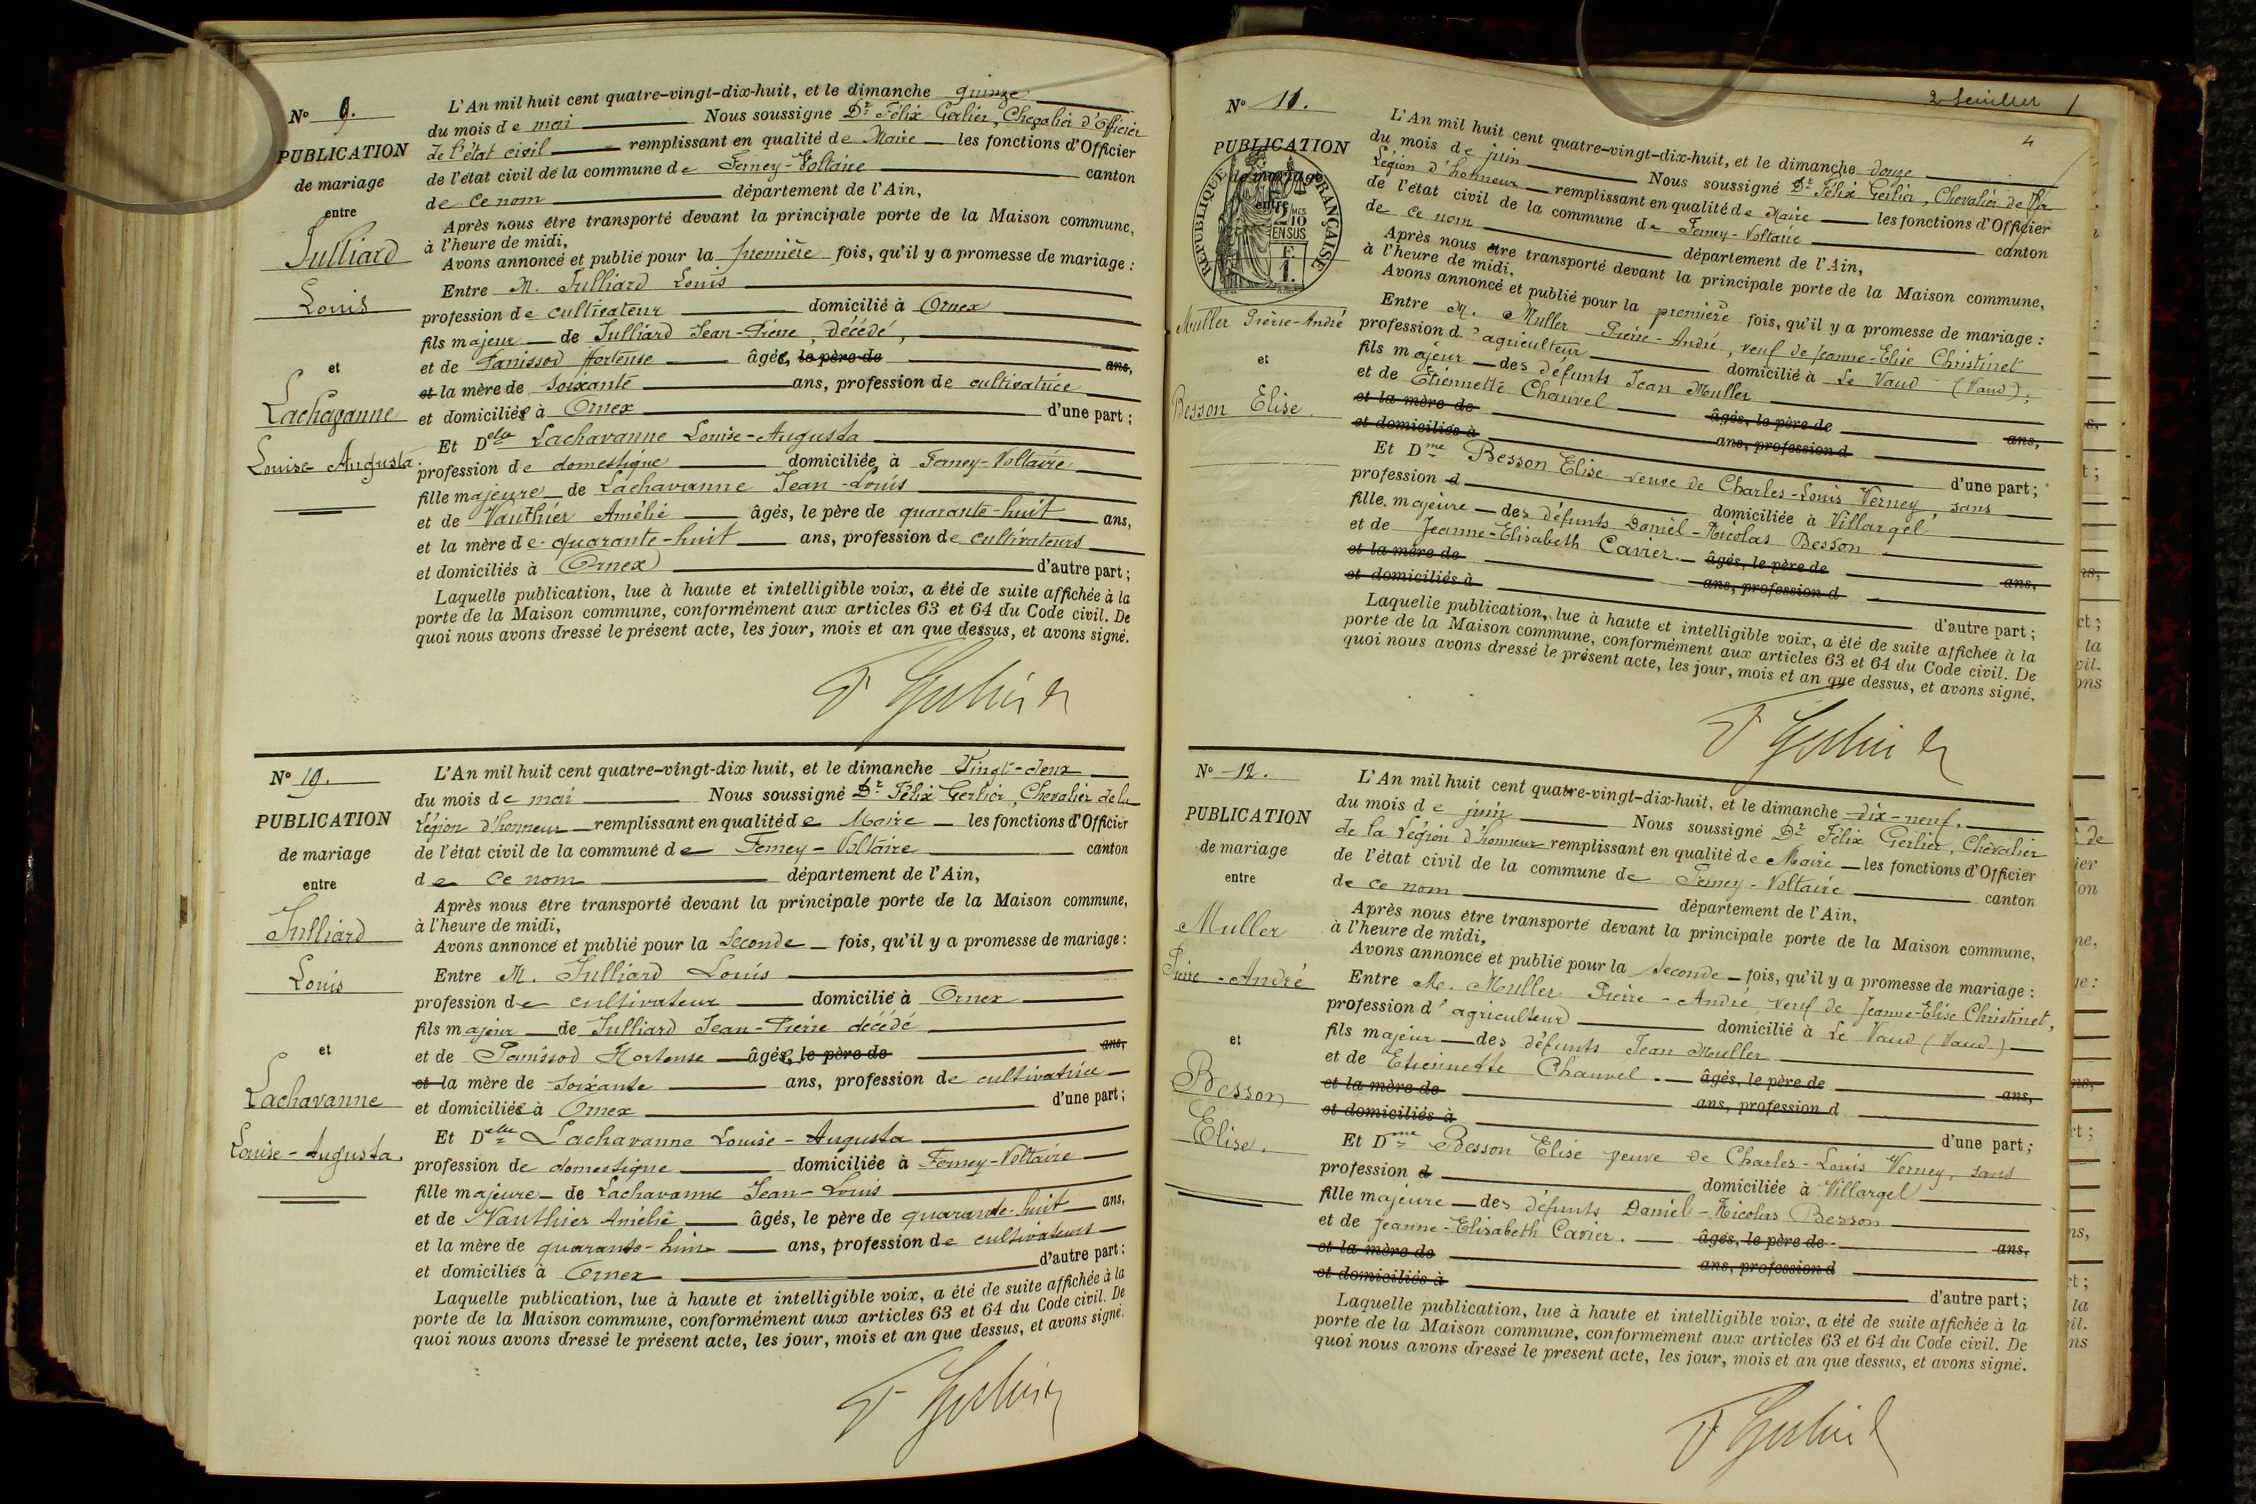 N° 9.
PUBLICATION
de mariage
entre
Julliard
Louis
et
Lachavanne
Louise-Augusta.
L'An mil huit cent quatre-vingt-dix-huit, et le dimanche quinze
du mois de mai Nous soussigné Dr Félix Gerlier, Chevalier d'Officier
de l'état civil remplissant en qualité de Maire les fonctions d'Officier
de l'état civil de la commune de Ferney-Voltaire canton
de ce nom département de l'Ain,
Après nous être transporté devant la principale porte de la Maison commune,
à l'heure de midi,
Avons annoncé et publié pour la première fois, qu'il y a promesse de mariage :
Entre M. Julliard Louis
profession de cultivateur domicilié à Ornex
fils majeur de Julliard Jean-Pierre, décédé,
et de Panissod Hortense âgée, le père de ans,
et la mère de soixante ans, profession de cultivatrice
et domiciliée à Ornex d'une part ;
Et Delle Lachavanne Louise-Augusta
profession de domestique domiciliée à Ferney-Voltaire
fille majeure de Lachavanne Jean-Louis
et de Vauthier Amélie âgés, le père de quarante-huit ans,
et la mère de quarante-huit ans, profession de cultivateurs
et domiciliés à Ornex d'autre part ;
Laquelle publication, lue à haute et intelligible voix, a été de suite affichée à la
porte de la Maison commune, conformément aux articles 63 et 64 du Code civil. De
quoi nous avons dressé le présent acte, les jour, mois et an que dessus, et avons signé.
F Gerlier
N° 10.
PUBLICATION
de mariage
entre
Julliard
Louis
et
Lachavanne
Louise-Augusta.
L'An mil huit cent quatre-vingt-dix huit, et le dimanche Vingt-deux
du mois de mai Nous soussigné Dr Félix Gerlier, Chevalier de la
Légion d'honneur remplissant en qualité de Maire les fonctions d'Officier
de l'état civil de la commune de Ferney-Voltaire canton
de ce nom département de l'Ain,
Après nous être transporté devant la principale porte de la Maison commune,
à l'heure de midi,
Avons annoncé et publié pour la seconde fois, qu'il y a promesse de mariage :
Entre M. Julliard Louis
profession de cultivateur domicilié à Ornex
fils majeur de Julliard Jean-Pierre décédé
et de Panissod Hortense âgée, le père de ans,
et la mère de soixante ans, profession de cultivatrice
et domiciliée à Ornex d'une part ;
Et Delle Lachavanne Louise-Augusta
profession de domestique domiciliée à Ferney-Voltaire
fille majeure de Lachavanne Jean-Louis
et de Vauthier Amélie âgés, le père de quarante-huit ans,
et la mère de quarante-huit ans, profession de cultivateurs
et domiciliés à Ornex d'autre part ;
Laquelle publication, lue à haute et intelligible voix, a été de suite affichée à la
porte de la Maison commune, conformément aux articles 63 et 64 du Code civil. De
quoi nous avons dressé le présent acte, les jour, mois et an que dessus, et avons signé.
F Gerlier
2 feuillet
4
N° 11.
PUBLICATION
de mariage
entre
RÉPUBLIQUE FRANÇAISE
2/10 EN SUS
F. 1.
Muller Pierre-André
et
Besson Elise.
L'An mil huit cent quatre-vingt-dix-huit, et le dimanche douze
du mois de juin Nous soussigné Dr Félix Gerlier, Chevalier de la
Légion d'honneur remplissant en qualité de Maire les fonctions d'Officier
de l'état civil de la commune de Ferney-Voltaire canton
de ce nom département de l'Ain,
Après nous être transporté devant la principale porte de la Maison commune,
à l'heure de midi,
Avons annoncé et publié pour la première fois, qu'il y a promesse de mariage :
Entre M. Muller Pierre-André, veuf de Jeanne-Elise Christinet
profession d'agriculteur domicilié à Le Vaud (Vaud);
fils majeur des défunts Jean Muller
et de Etiennette Chauvel âgés, le père de ans,
et la mère de ans, profession d
et domiciliés à d'une part ;
Et Dme Besson Elise veuve de Charles-Louis Verney, sans
profession d domiciliée à Villargel
fille majeure des défunts Daniel-Nicolas Besson
et de Jeanne-Elisabeth Cavier. âgés, le père de ans,
et la mère de ans, profession d
et domiciliés à d'autre part ;
Laquelle publication, lue à haute et intelligible voix, a été de suite affichée à la
porte de la Maison commune, conformément aux articles 63 et 64 du Code civil. De
quoi nous avons dressé le présent acte, les jour, mois et an que dessus, et avons signé.
F Gerlier
N° 12.
PUBLICATION
de mariage
entre
Muller
Pierre-André
et
Besson
Elise.
L'An mil huit cent quatre-vingt-dix-huit, et le dimanche dix-neuf.
du mois de juin Nous soussigné Dr Félix Gerlier, Chevalier
de la Légion d'honneur remplissant en qualité de Maire les fonctions d'Officier
de l'état civil de la commune de Ferney-Voltaire canton
de ce nom département de l'Ain,
Après nous être transporté devant la principale porte de la Maison commune,
à l'heure de midi,
Avons annoncé et publié pour la seconde fois, qu'il y a promesse de mariage :
Entre M. Muller Pierre-André, veuf de Jeanne-Elise Christinet,
profession d'agriculteur domicilié à Le Vaud (Vaud)
fils majeur des défunts Jean Muller
et de Etiennette Chauvel. âgés, le père de ans,
et la mère de ans, profession d
et domiciliés à d'une part ;
Et Dme Besson Elise veuve de Charles-Louis Verney, sans
profession d domiciliée à Villargel
fille majeure des défunts Daniel-Nicolas Besson
et de Jeanne-Elisabeth Cavier. âgés, le père de ans,
et la mère de ans, profession d
et domiciliés à d'autre part ;
Laquelle publication, lue à haute et intelligible voix, a été de suite affichée à la
porte de la Maison commune, conformément aux articles 63 et 64 du Code civil. De
quoi nous avons dressé le présent acte, les jour, mois et an que dessus, et avons signé.
F Gerlier